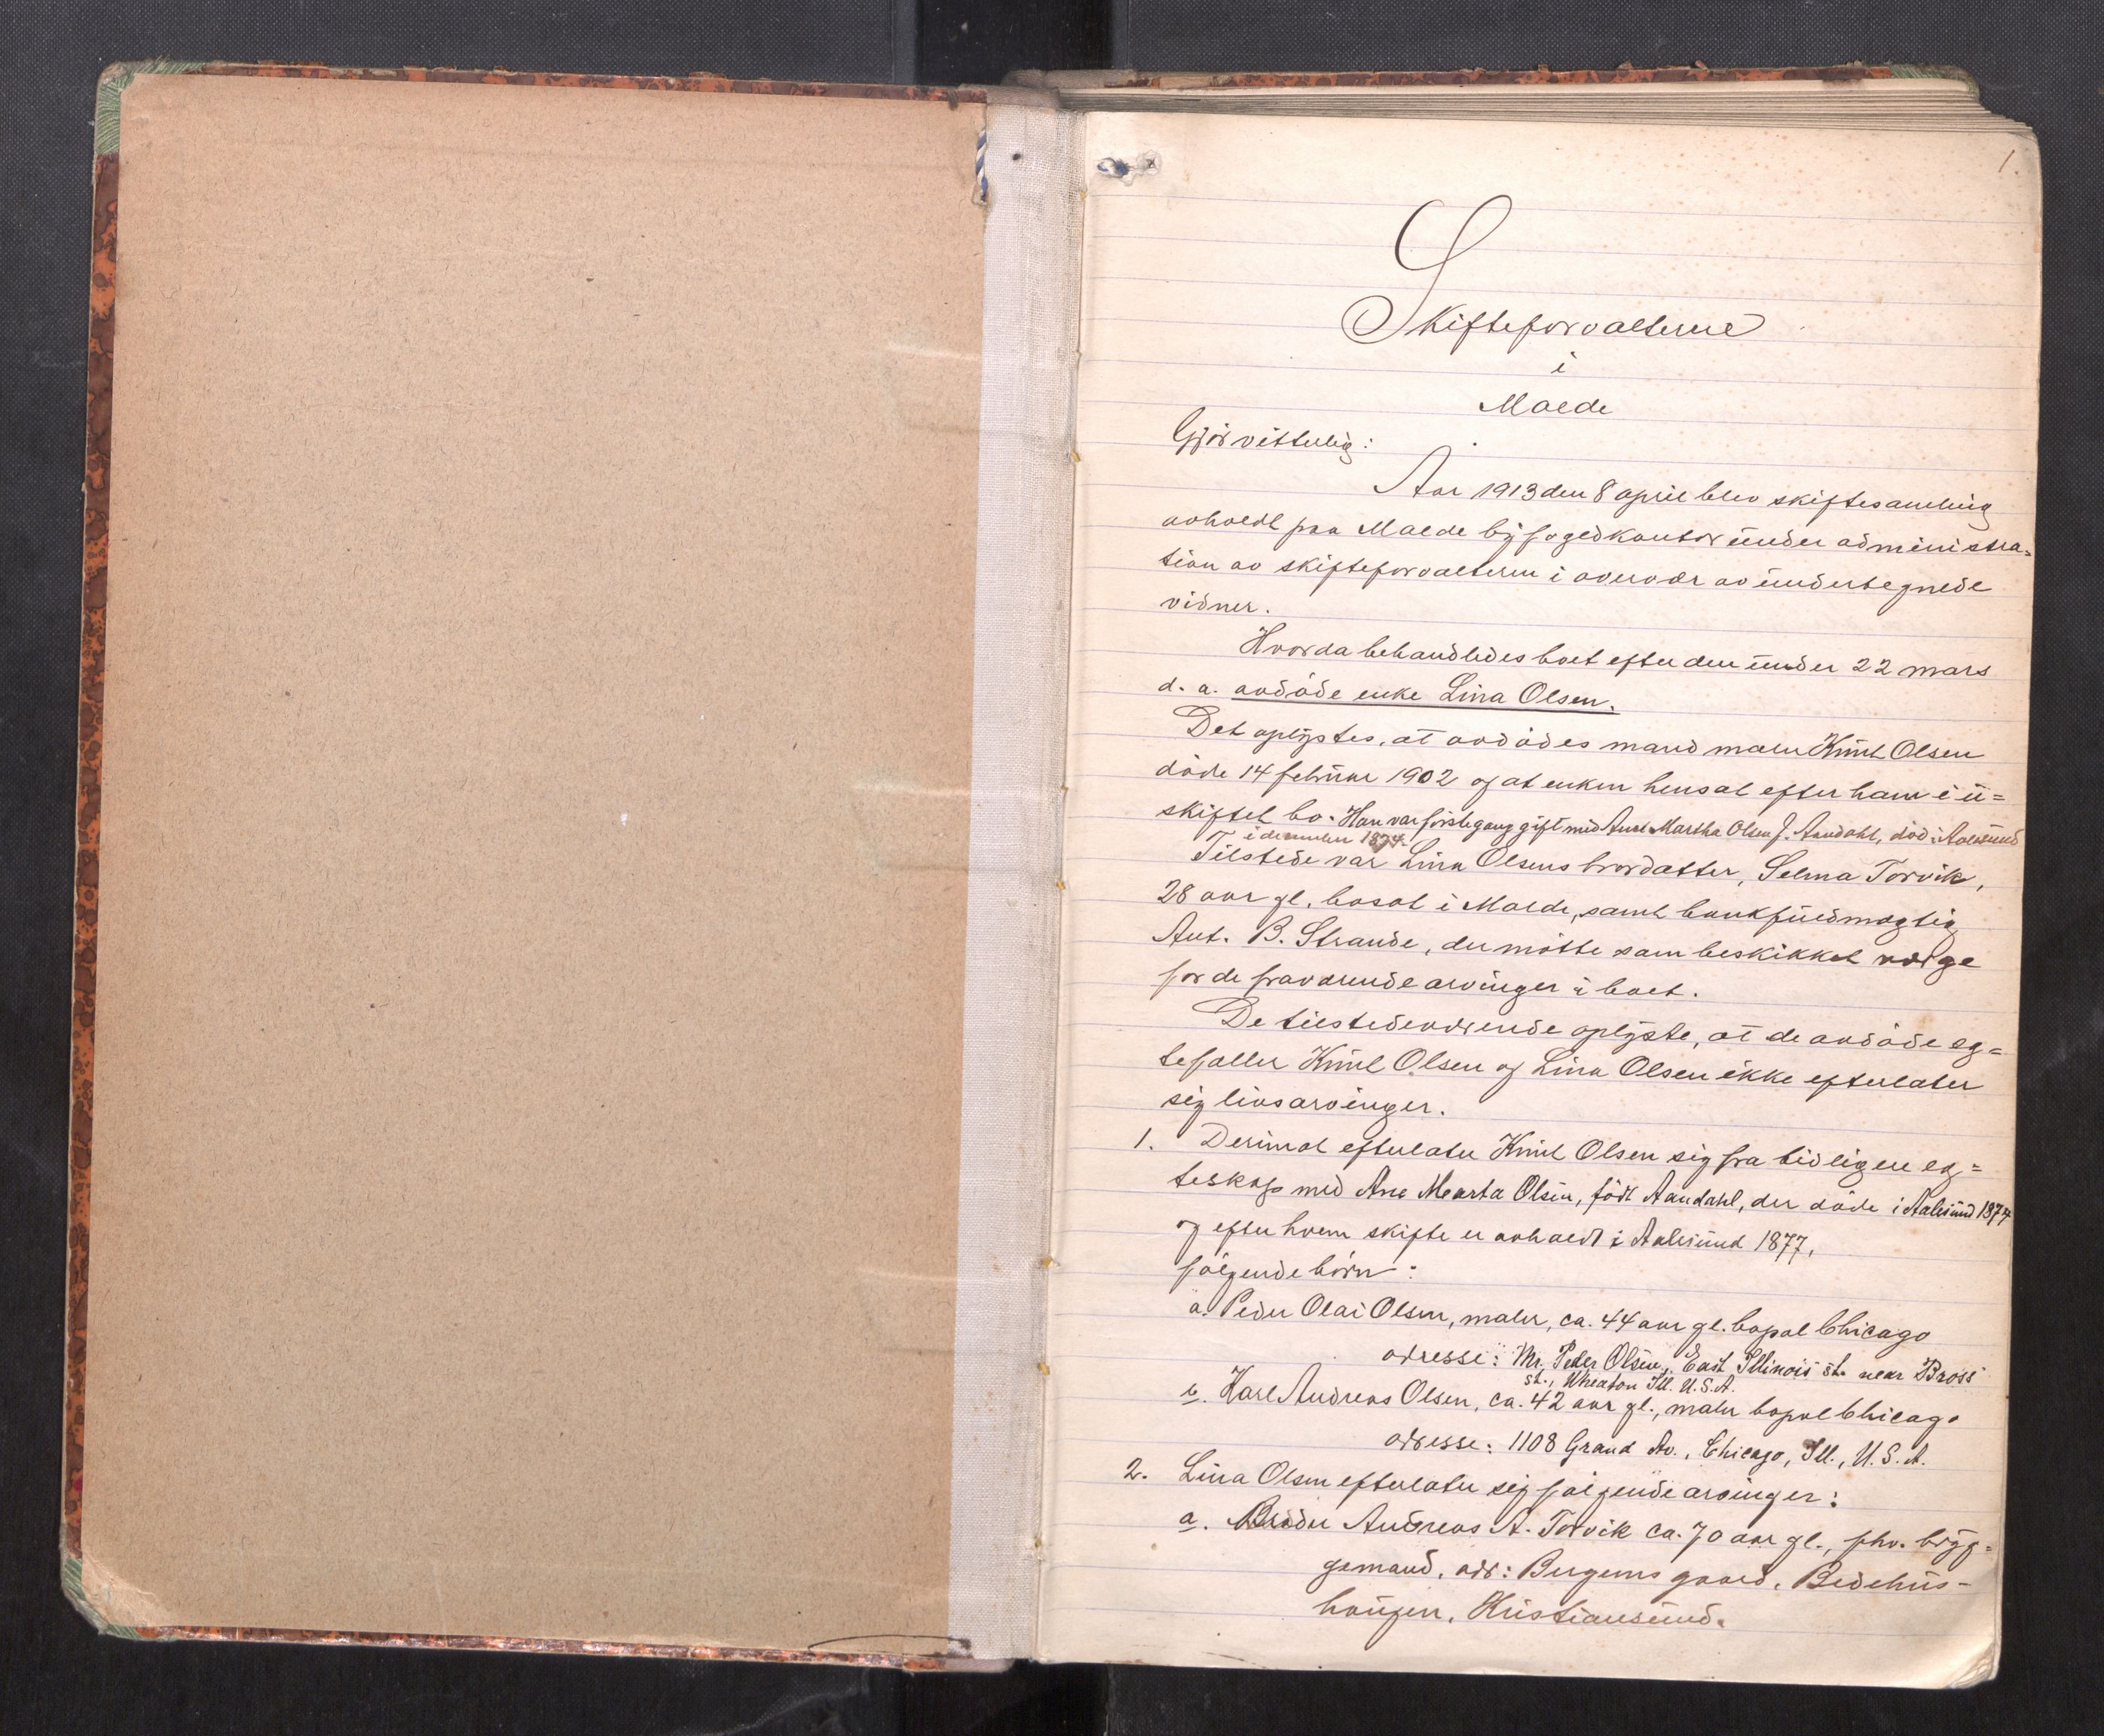 1.
Skifteforvalteren
i
Molde
Gjør vitterlig:
Aar 1913 den 8 april blev skiftesamling
avholdt paa Molde byfogedkontor under administra=
tion av skifteforvalteren i overvær av undertegnede
vidner.
Hvorda behandledes boet efter den under 22 mars
d. a. avdøde enke Lina Olsen.
Det oplystes, at avdødes mand maler Knut Olsen
døde 14 februar 1902 og at enken hensat efter ham i u=
skiftet bo. Han var første gang gift med Ane Martha Olsen f. Aandahl, død i Aalesund
i december 1874.
Tilstede var Lina Olsens brordatter, Selma Torvik,
28 aar gl. bosat i Molde, samt bankfuldmægtig
Ant. B. Strande, der møtte som beskikket værge
for de fraværende arvinger i boet.
De tilstedeværende oplyste, at de avdøde eg=
tefæller Knut Olsen og Lina Olsen ikke efterlater
sig livsarvinger.
1. Derimot efterlater Knut Olsen sig fra tidligere eg=
teskap med Ane Marta Olsen, født Aandahl, der døde i Aalesund 1874
og efter hvem skifte er avholdt i Aalesund 1877,
følgende børn:
a. Peder Olai Olsen, maler, ca. 44 aar gl. bopæl Chicago
adresse: Mr. Peder Olsen, East Illinois st. near Bross
st., Wheaton Ill. U.S.A.
b. Karl Andreas Olsen, ca. 42 aar gl., maler bopæl Chicago
adresse: 1108 Grand Av., Chicago, Ill., U.S.A.
2. Lina Olsen efterlater sig følgende arvinger:
a. Broder Andreas A. Torvik ca. 70 aar gl., fhv. bryg=
gemand, adr: Bergems gaard, Bedehus-
haugen, Kristiansund.